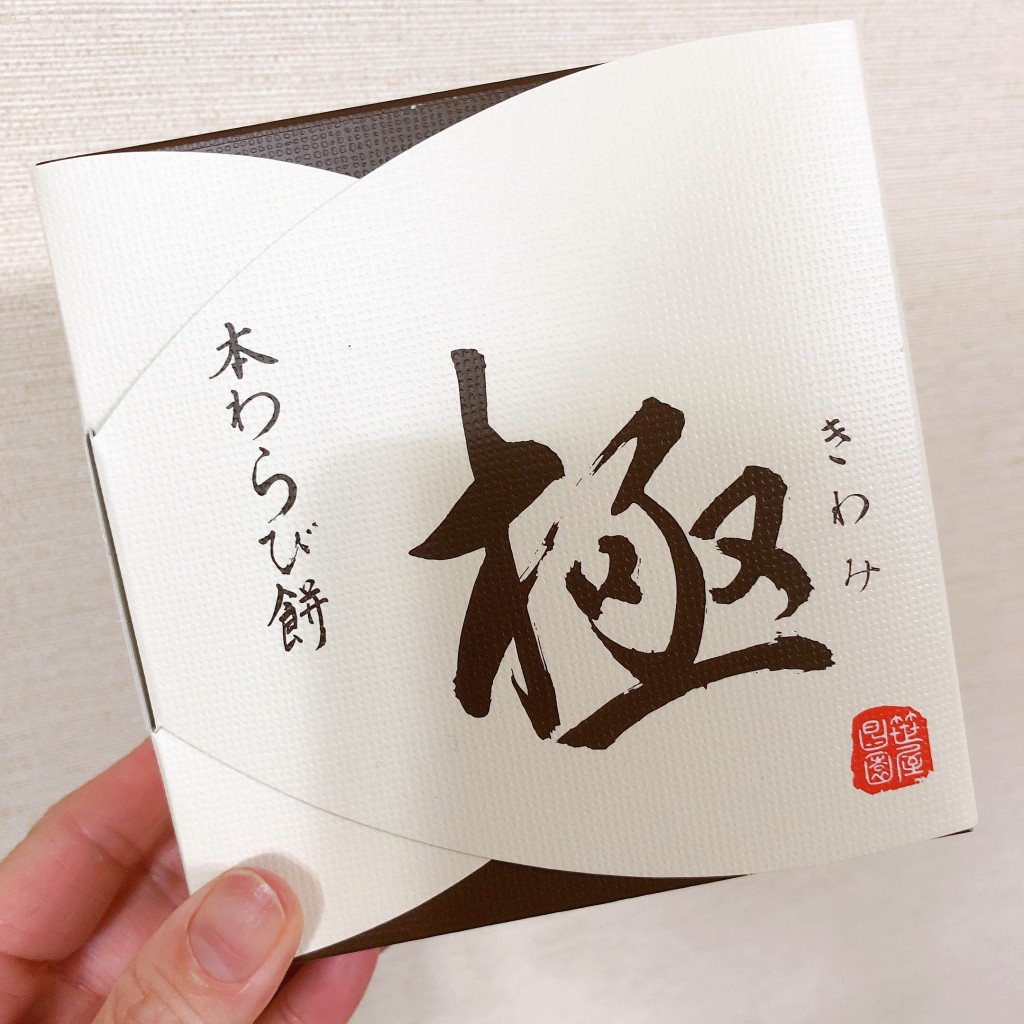 きわみ
極
本わらび餅
笹屋
昌園